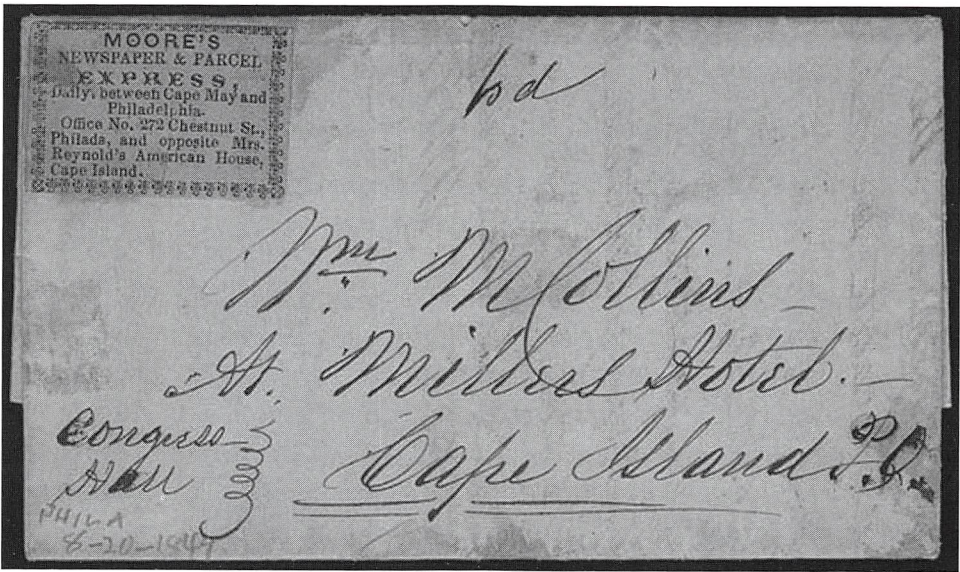 MOORE'S
NEWSPAPER & PARCEL
EXPRESS,
Daily, between Cape May and
Philadelphia.
Office No. 272 Chestnut St.,
Philada, and opposite Mrs.
Reynold's American House,
Cape Island.
Wm M Collins
At. Millers Hotel.
Congress
Hall
Cape Island
PHILA
8-20-1847